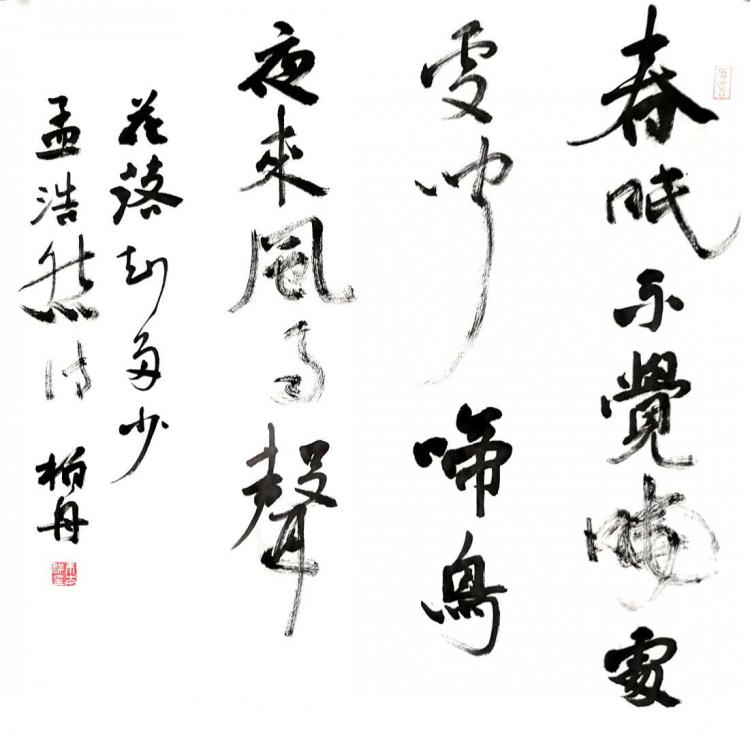 春眠不覺曉處
處聞啼鳥
夜來風雨聲
花落知多少
孟浩然詩 柏舟